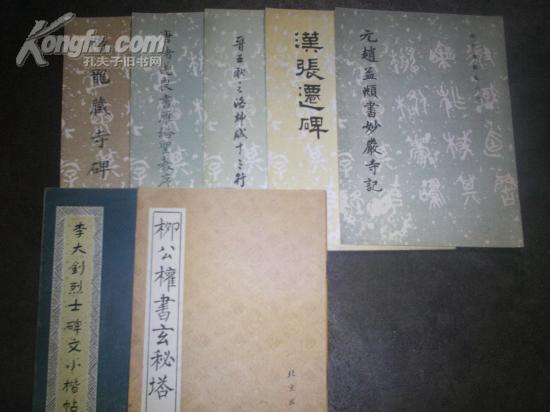 Kongfz.com
孔夫子旧书网
龍藏寺碑
唐褚遂良書雁塔聖教序
晋王献之洛神赋十三行
漢張遷碑
元趙孟頫書妙嚴寺記
李大釗烈士碑文小楷帖
柳公權書玄秘塔
北京出